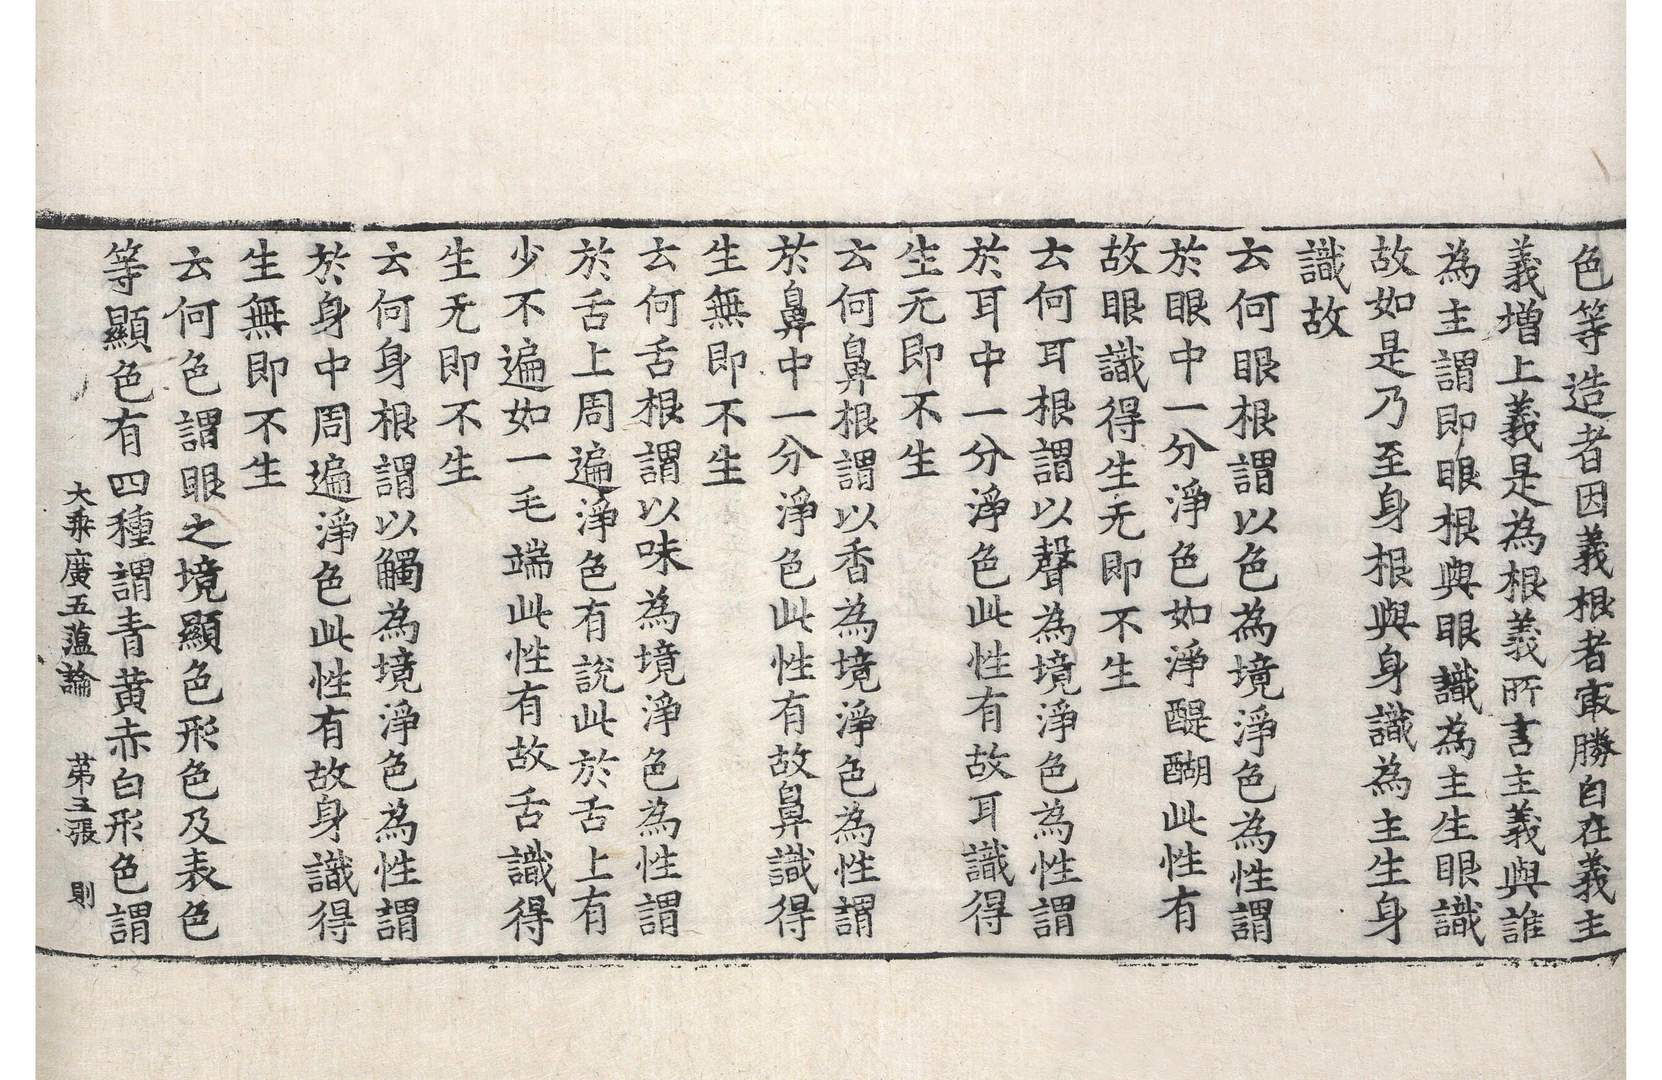 色等造者因義根者㝡勝自在義主
義增上義是為根義所言主義與誰
為主謂即眼根與眼識為主生眼識
故如是乃至身根與身識為主生身
識故
云何眼根謂以色為境淨色為性謂
於眼中一分淨色如淨醍醐此性有
故眼識得生无即不生
云何耳根謂以聲為境淨色為性謂
於耳中一分淨色此性有故耳識得
生无即不生
云何鼻根謂以香為境淨色為性謂
於鼻中一分淨色此性有故鼻識得
生無即不生
云何舌根謂以味為境淨色為性謂
於舌上周遍淨色有說此於舌上有
少不遍如一毛端此性有故舌識得
生无即不生
云何身根謂以觸為境淨色為性謂
於身中周遍淨色此性有故身識得
生無即不生
云何色謂眼之境顯色形色及表色
等顯色有四種謂青黃赤白形色謂
大乘廣五蕰論 第三張 則